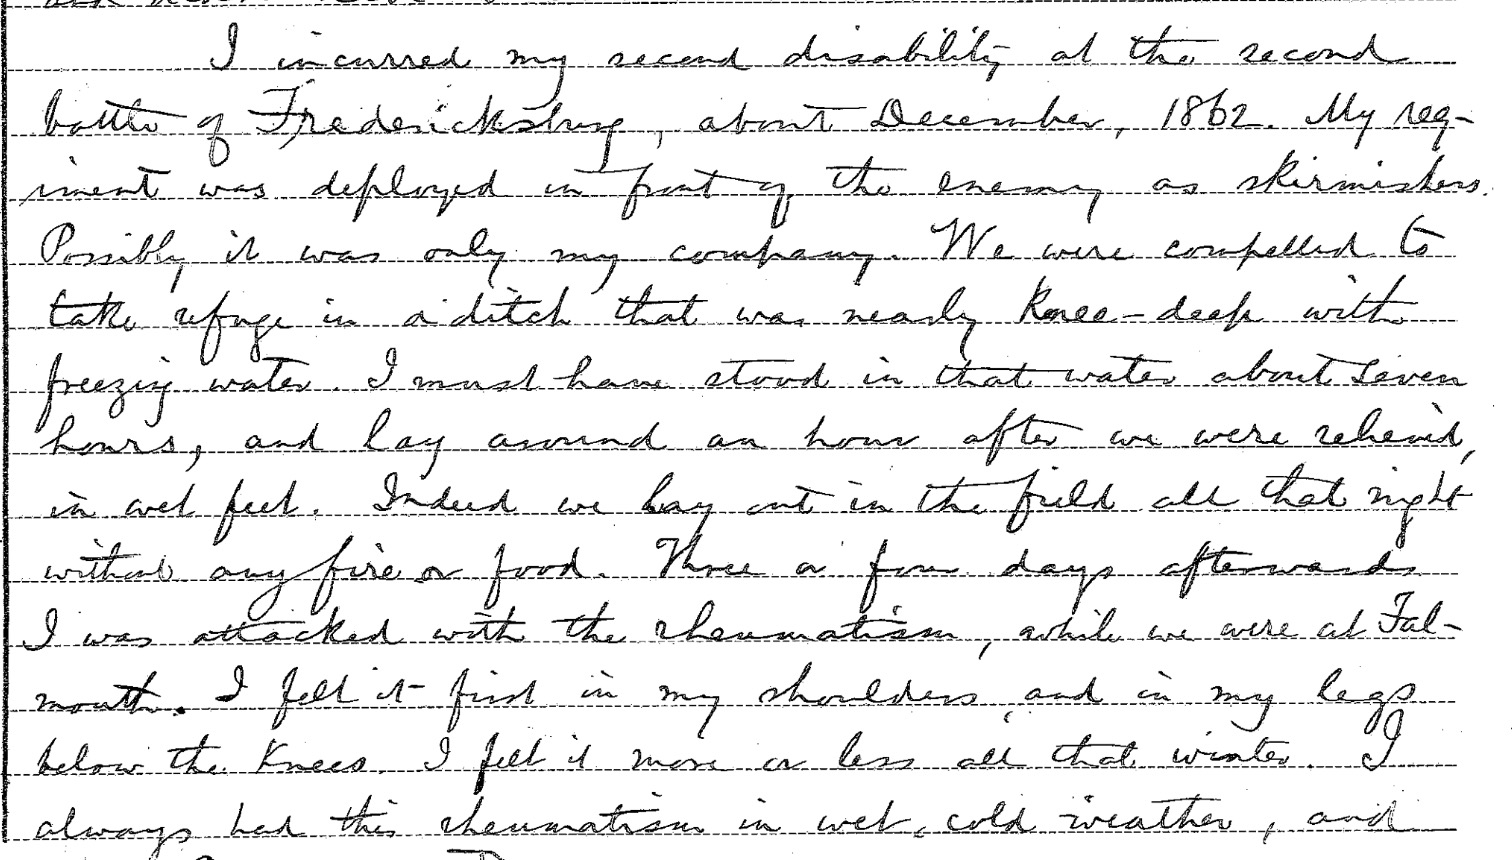 I incurred my second disability at the second
battle of Fredericksburg, about December, 1862. My reg-
iment was deployed in front of the enemy as skirmishers.
Possibly it was only my company. We were compelled to
take refuge in a ditch that was nearly knee-deep with
freezing water. I must have stood in that water about seven
hours, and lay around an hour after we were relieved,
in wet feet. Indeed we lay out in the field all that night
without any fire or food. Three or four days afterwards
I was attacked with the rheumatism, while we were at Fal-
mouth. I felt it first in my shoulders, and in my legs
below the knees. I felt it more or less all that winter. I
always had this rheumatism in wet, cold weather, and